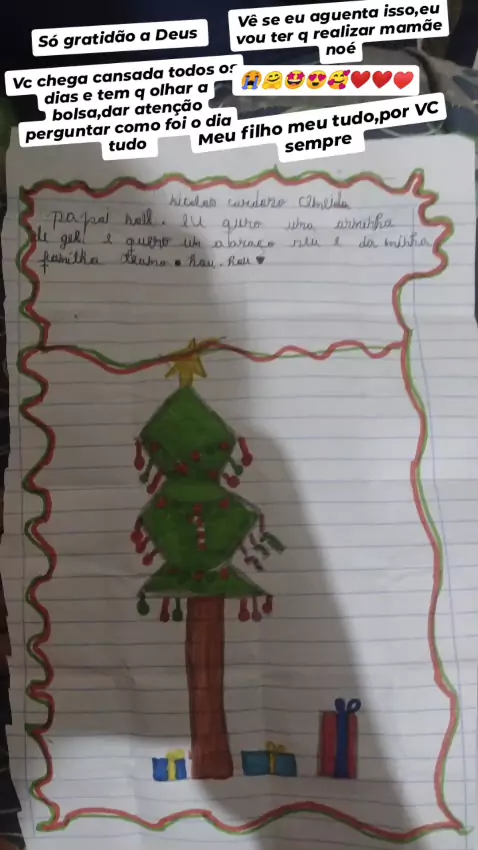 Só gratidão a Deus
Vê se eu aguenta isso,eu
vou ter q realizar mamãe
noé
😭🤗🤩😍🥰❤️❤️❤️
Vc chega cansada todos os
dias e tem q olhar a
bolsa,dar atenção
perguntar como foi o dia
tudo
Meu filho meu tudo,por VC
sempre
Nicolas Cardozo Almeida
papai noll. eu quro uma arminha
de gel. e quero um abraço seu e da minha
familha
Rou. Rou